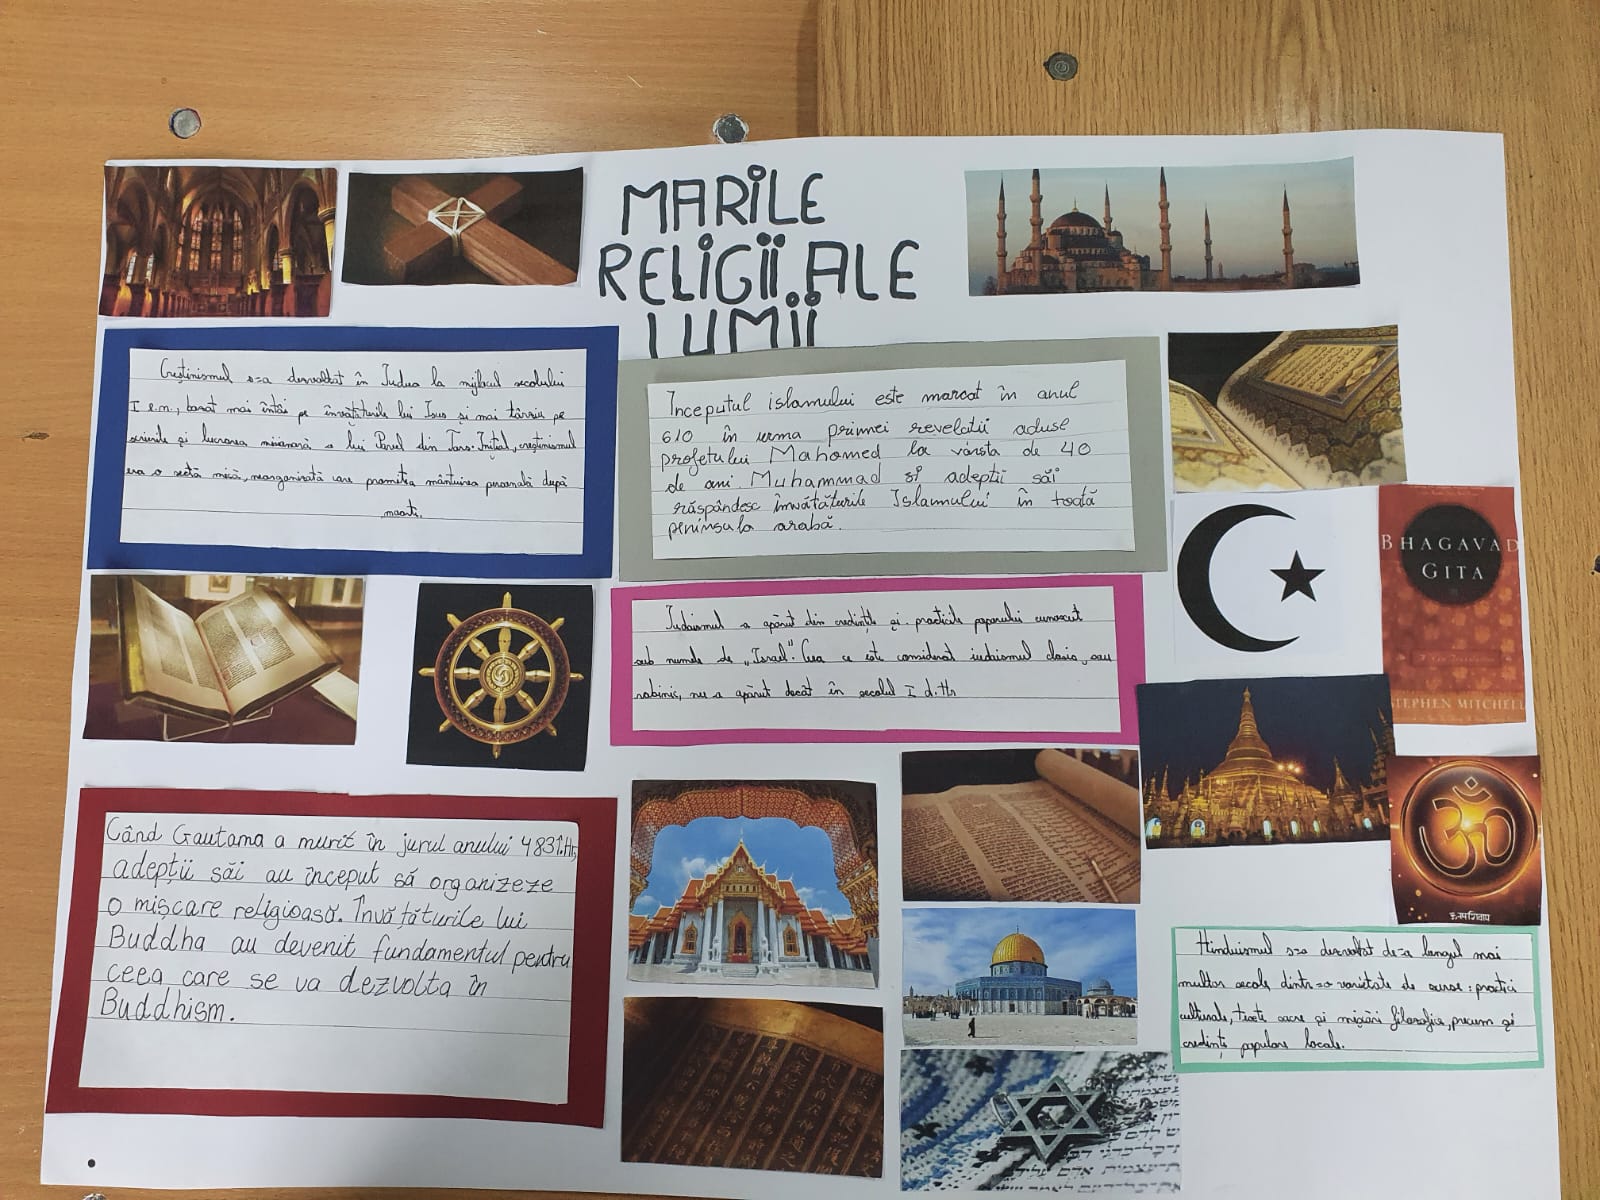 MARILE
RELIGII ALE
LUMII
Creștinismul s-a dezvoltat în Iudea la mijlocul secolului
I e.n., bazat mai întâi pe învățăturile lui Isus și mai târziu pe
scrierile și lucrarea misionară a lui Pavel din Tars. Inițial, creștinismul
era o sectă mică, neorganizată care promitea mântuirea personală după
moarte.
Începutul islamului este marcat în anul
610 în urma primei revelatii aduse
profetului Mahomed la vârsta de 40
de ani. Muhammad si adeptii săi
răspândesc învătăturile Islamului în toată
peninsula arabă.
BHAGAVAD
GITA
STEPHEN MITCHELL
Iudaismul a apărut din credințele și practicile poporului cunoscut
sub numele de „Israel". Ceea ce este considerat iudaismul clasic, sau
rabinic, nu a apărut decât în secolul I d.Hr
Când Gautama a murit în jurul anului 483Î.Hr,
adepții săi au început să organizeze
o mișcare religioasă. Învățăturile lui
Buddha au devenit fundamentul pentru
ceea care se va dezvolta în
Buddhism.
Hinduismul s-a dezvoltat de-a lungul mai
multor secole dintr-o varietate de surse: practici
culturale, texte sacre și mișcări filozofice, precum și
credințe populare locale.